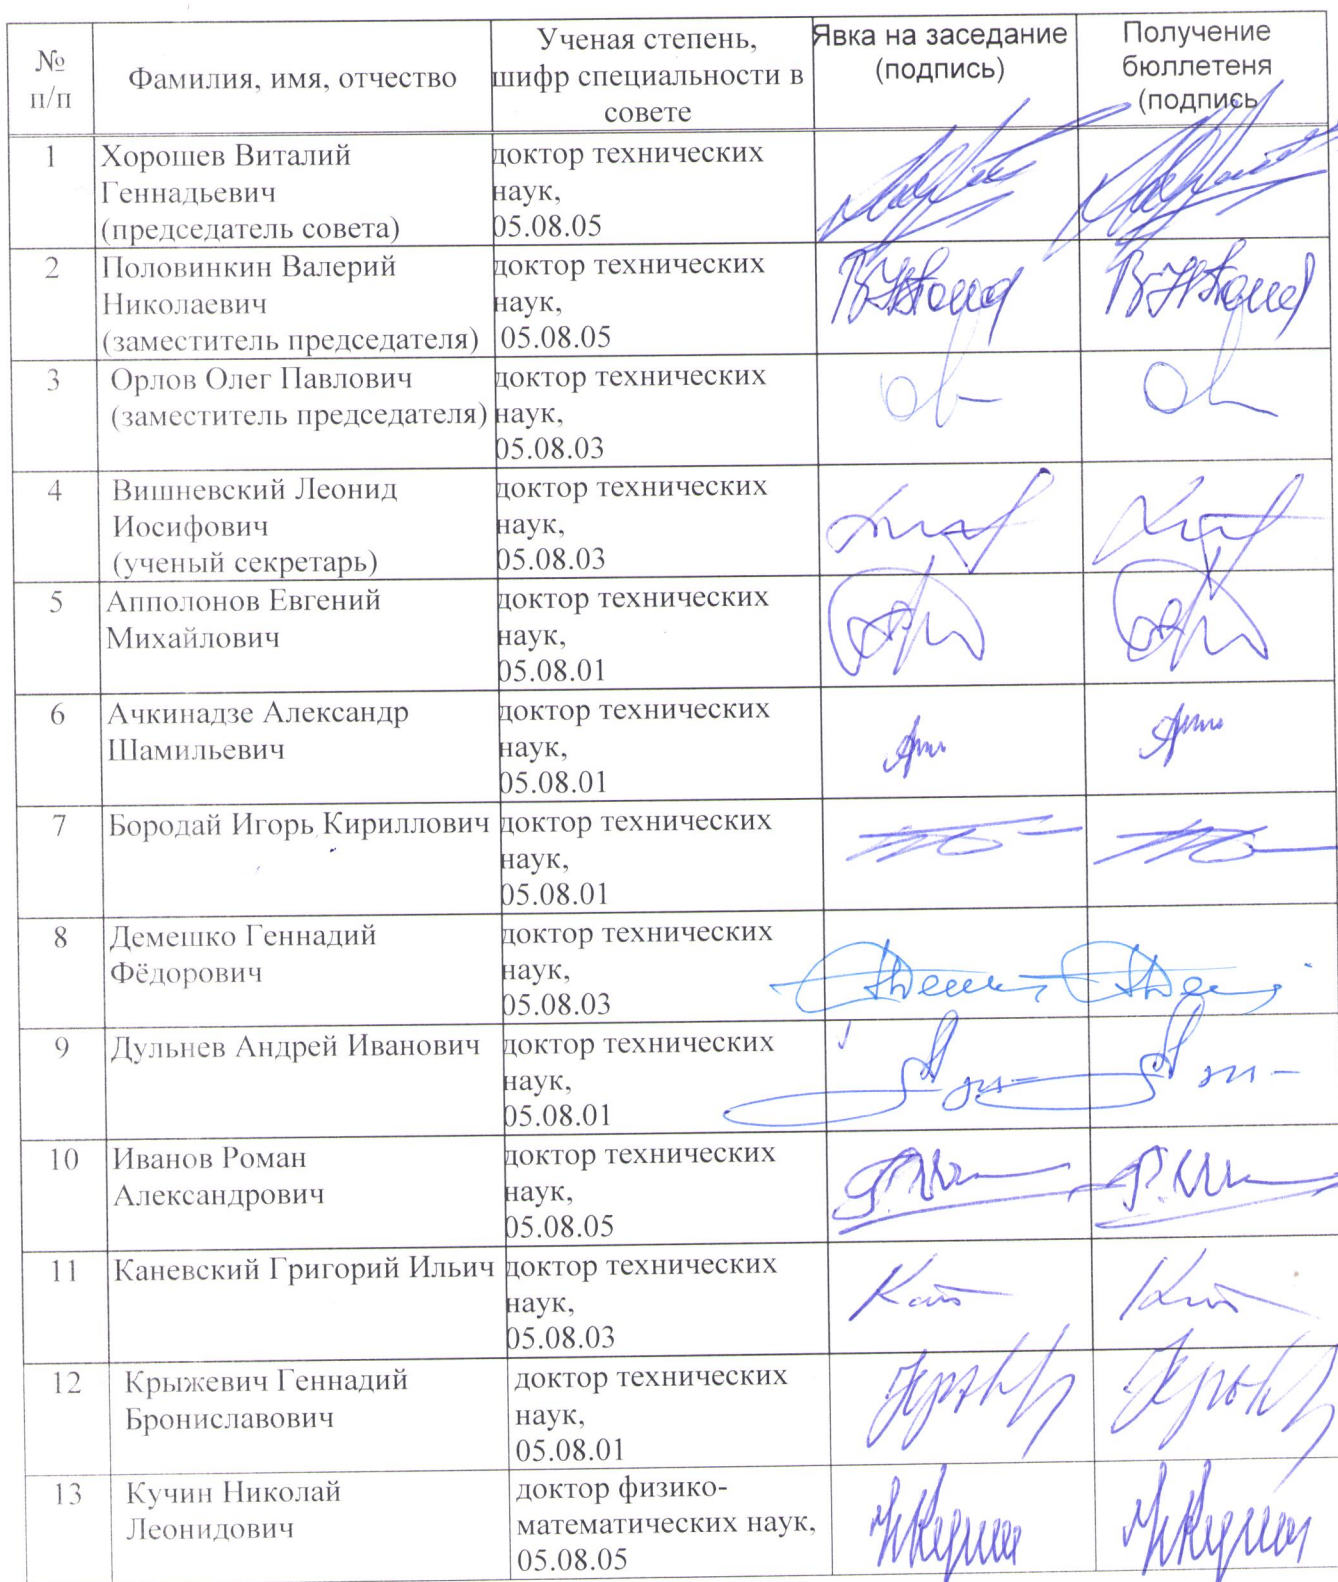 №
п/п
Фамилия, имя, отчество
Ученая степень,
шифр специальности в
совете
Явка на заседание
(подпись)
Получение
бюллетеня
(подпись
1
Хорошев Виталий
Геннадьевич
(председатель совета)
доктор технических
наук,
05.08.05
2
Половинкин Валерий
Николаевич
(заместитель председателя)
доктор технических
наук,
05.08.05
3
Орлов Олег Павлович
(заместитель председателя)
доктор технических
наук,
05.08.03
4
Вишневский Леонид
Иосифович
(ученый секретарь)
доктор технических
наук,
05.08.03
5
Апполонов Евгений
Михайлович
доктор технических
наук,
05.08.01
6
Ачкинадзе Александр
Шамильевич
доктор технических
наук,
05.08.01
7
Бородай Игорь Кириллович
доктор технических
наук,
05.08.01
8
Демешко Геннадий
Фёдорович
доктор технических
наук,
05.08.03
9
Дульнев Андрей Иванович
доктор технических
наук,
05.08.01
10
Иванов Роман
Александрович
доктор технических
наук,
05.08.05
11
Каневский Григорий Ильич
доктор технических
наук,
05.08.03
12
Крыжевич Геннадий
Брониславович
доктор технических
наук,
05.08.01
13
Кучин Николай
Леонидович
доктор физико-
математических наук,
05.08.05